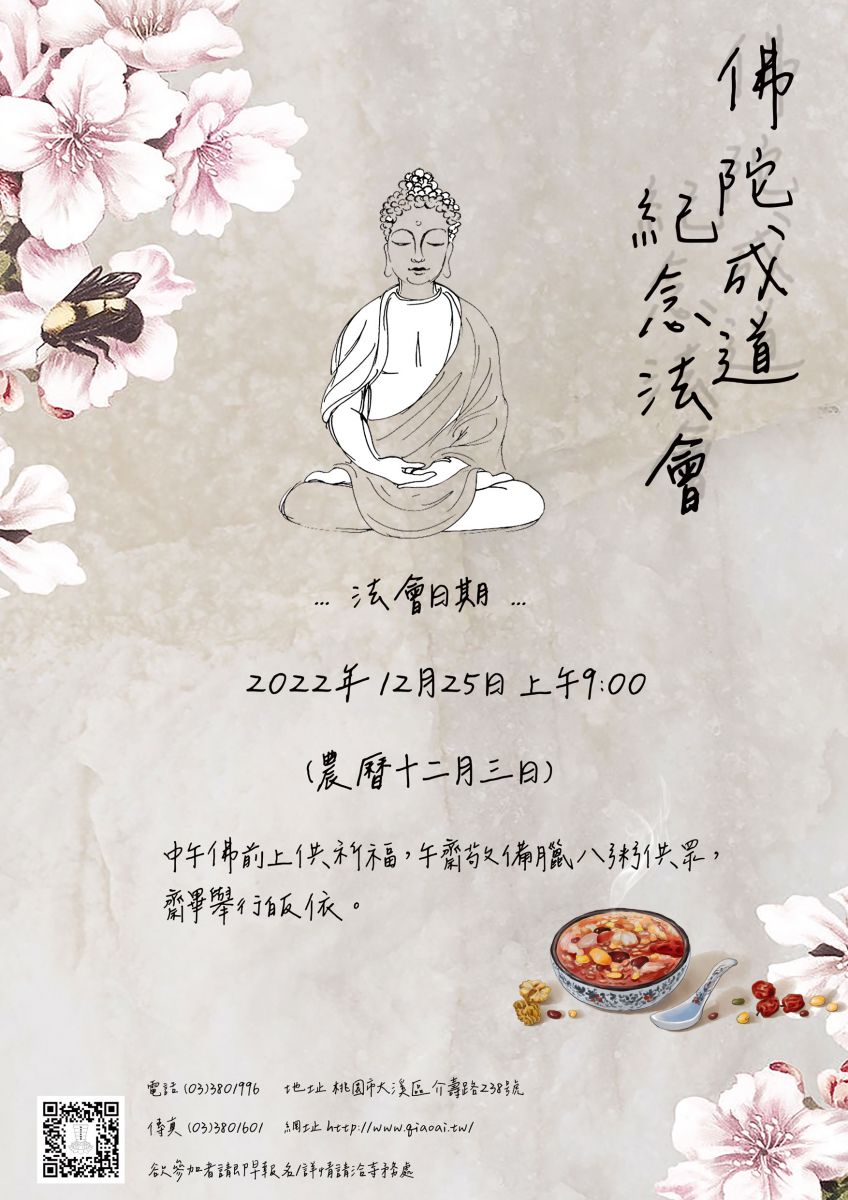 佛陀成道
紀念法會
... 法會日期 ...
2022年 12月25日 上午9:00
(農曆十二月三日)
中午佛前上供祈福，午齋敬備臘八粥供眾，
齋畢舉行皈依。
電話 (03)3801996 地址 桃園市大溪區介壽路238號
傳真 (03)3801601 網址 http://www.qiaoai.tw/
欲參加者請即早報名/詳情請洽寺務處